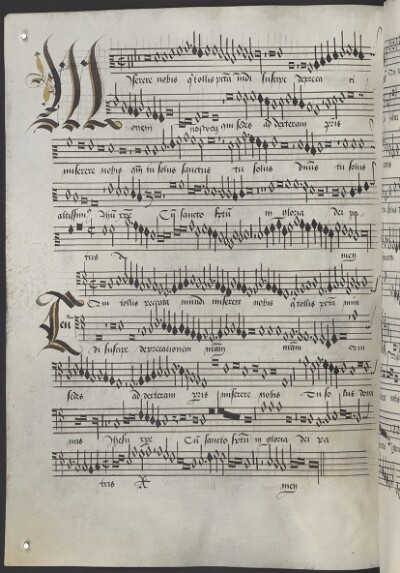 Miserere nobis q tollis pctā mūdi suscipe depreca ci
onem nostram qui sedes ad dexteram pris
miserere nobis qm̄ tu solus sanctus tu solus dn̄us tu solus
altissim9 Ihū xpe Cū sancto spū in gloria dei pa
tris men
Qui tollis peccata mundi miserere nobis q tollis pctā mun
Ten
di suscipe deprecationem nram nram
sedes ad dexteram pris miserere nobis Tu so lus domi
nus Jhesu xpe Cū sancto spū in gloria dei pa
tris men